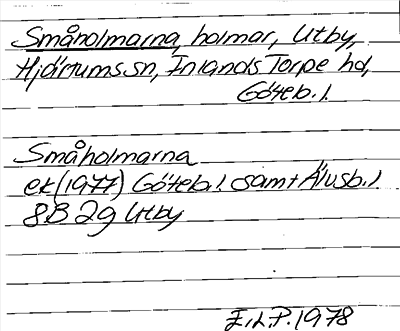 Småholmarna, holmar, Utby,
Hjärtums sn, Inlands Torpe hd,
Göteb. l.
Småholmarna
ek (1977) Göteb. l samt Älvsb. l
8B 2g Utby
E.L.P. 1978